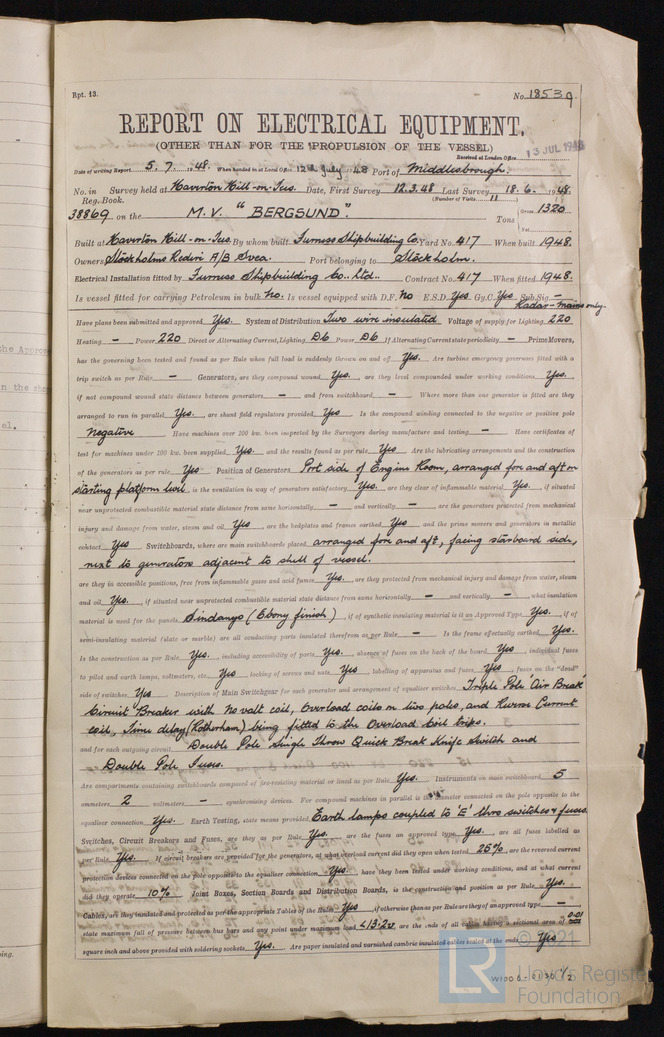 Rpt. 13.
No. 18539.
REPORT ON ELECTRICAL EQUIPMENT.
(OTHER THAN FOR THE PROPULSION OF THE VESSEL)
Received at London Office 13 JUL 1948
Date of writing Report 5. 7. 1948. When handed in at Local Office 12th July 48 Port of Middlesbrough.
No. in Survey held at Haverton Hill-on-Tees. Date, First Survey 12.3.48 Last Survey 18.6.1948.
Reg. Book. (Number of Visits 11)
38869 on the M.V. "BERGSUND". Tons Gross 1320
Net
Built at Haverton Hill-on-Tees By whom built Furness Shipbuilding Co. Yard No. 417 When built 1948.
Owners Stockholms Rederi A/B Svea. Port belonging to Stockholm.
Electrical Installation fitted by Furness Shipbuilding Co. Ltd. Contract No. 417 When fitted 1948.
Is vessel fitted for carrying Petroleum in bulk No. Is vessel equipped with D.F. No E.S.D. Yes. Gy.C. Yes Sub.Sig —
Radar - Mains only.
Have plans been submitted and approved Yes. System of Distribution Two wire insulated Voltage of supply for Lighting 220
Heating — Power 220 Direct or Alternating Current, Lighting D6 Power D6 If Alternating Current state periodicity — Prime Movers,
has the governing been tested and found as per Rule when full load is suddenly thrown on and off Yes. Are turbine emergency governors fitted with a
trip switch as per Rule — Generators, are they compound wound Yes. are they level compounded under working conditions Yes.
if not compound wound state distance between generators — and from switchboard — Where more than one generator is fitted are they
arranged to run in parallel Yes. are shunt field regulators provided Yes Is the compound winding connected to the negative or positive pole
Negative Have machines over 100 kw. been inspected by the Surveyors during manufacture and testing — Have certificates of
test for machines under 100 kw. been supplied Yes. and the results found as per rule Yes Are the lubricating arrangements and the construction
of the generators as per rule Yes Position of Generators Port side of Engine Room, arranged fore and aft on
starting platform level. is the ventilation in way of generators satisfactory Yes. are they clear of inflammable material Yes. if situated
near unprotected combustible material state distance from same horizontally — and vertically — are the generators protected from mechanical
injury and damage from water, steam and oil Yes are the bedplates and frames earthed Yes and the prime movers and generators in metallic
contact Yes Switchboards, where are main switchboards placed arranged fore and aft, facing starboard side,
next to generators adjacent to shell of vessel.
are they in accessible positions, free from inflammable gases and acid fumes Yes. are they protected from mechanical injury and damage from water, steam
and oil Yes. if situated near unprotected combustible material state distance from same horizontally — and vertically — what insulation
material is used for the panels Sindanyo (Ebony finish) if of synthetic insulating material is it an Approved Type Yes. if of
semi-insulating material (slate or marble) are all conducting parts insulated therefrom as per Rule — Is the frame effectually earthed Yes.
Is the construction as per Rule Yes. including accessibility of parts Yes. absence of fuses on the back of the board Yes individual fuses
to pilot and earth lamps, voltmeters, etc. Yes locking of screws and nuts Yes labelling of apparatus and fuses Yes fuses on the "dead"
side of switches Yes Description of Main Switchgear for each generator and arrangement of equaliser switches Triple Pole 'Air Break'
Circuit Breaker with No volt coil, Overload coils on two poles, and Reverse Current
coil, Time delay (Rotherham) being fitted to the Overload coil trips.
and for each outgoing circuit Double Pole Single Throw Quick Break Knife Switch and
Double Pole Fuses.
Are compartments containing switchboards composed of fire-resisting material or lined as per Rule Yes. Instruments on main switchboard 5
ammeters 2 voltmeters — synchronising devices. For compound machines in parallel is the ammeter connected on the pole opposite to the
equaliser connection Yes. Earth Testing, state means provided Earth lamps coupled to 'E' thro switches & fuses.
Switches, Circuit Breakers and Fuses, are they as per Rule Yes. are the fuses an approved type Yes. are all fuses labelled as
per Rule Yes. If circuit breakers are provided for the generators, at what overload current did they open when tested 25% are the reversed current
protection devices connected on the pole opposite to the equaliser connection Yes. have they been tested under working conditions, and at what current
did they operate 10% Joint Boxes, Section Boards and Distribution Boards, is the construction and position as per Rule Yes.
Cables, are they insulated and protected as per the appropriate Tables of the Rules Yes if otherwise than as per Rule are they of an approved type —
state maximum fall of pressure between bus bars and any point under maximum load <13.2v are the ends of all cables having a sectional area of 0.01
square inch and above provided with soldering sockets Yes. Are paper insulated and varnished cambric insulated cables sealed at the ends Yes
© 2021
LR
Lloyd's Register
Foundation
W1006-0136 1/2
the Approv
n the sho
el.
ing.